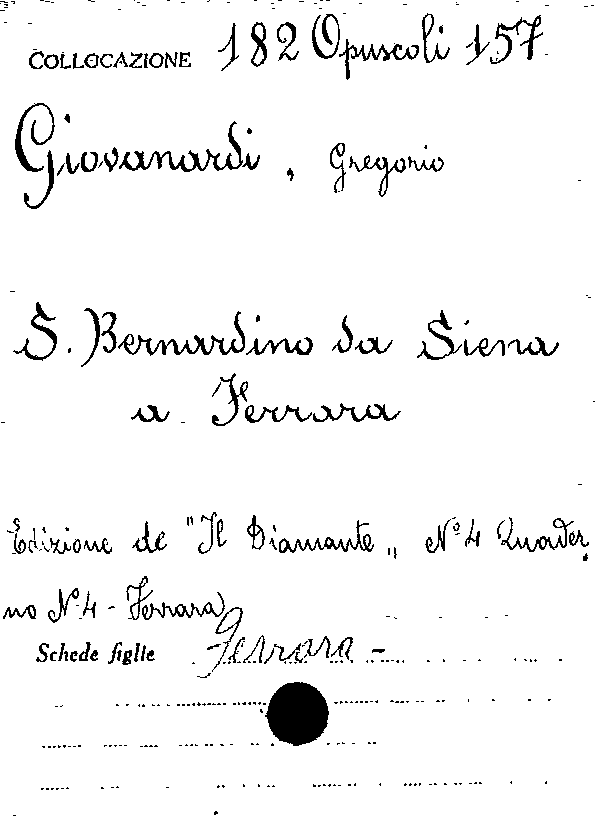 COLLOCAZIONE 182 Opuscoli 157
Giovanardi, Gregorio
S. Bernardino da Siena
a Ferrara
Edizione de "Il Diamante„ N° 4 Quader
no N° 4 - Ferrara
Schede figlie Ferrara -